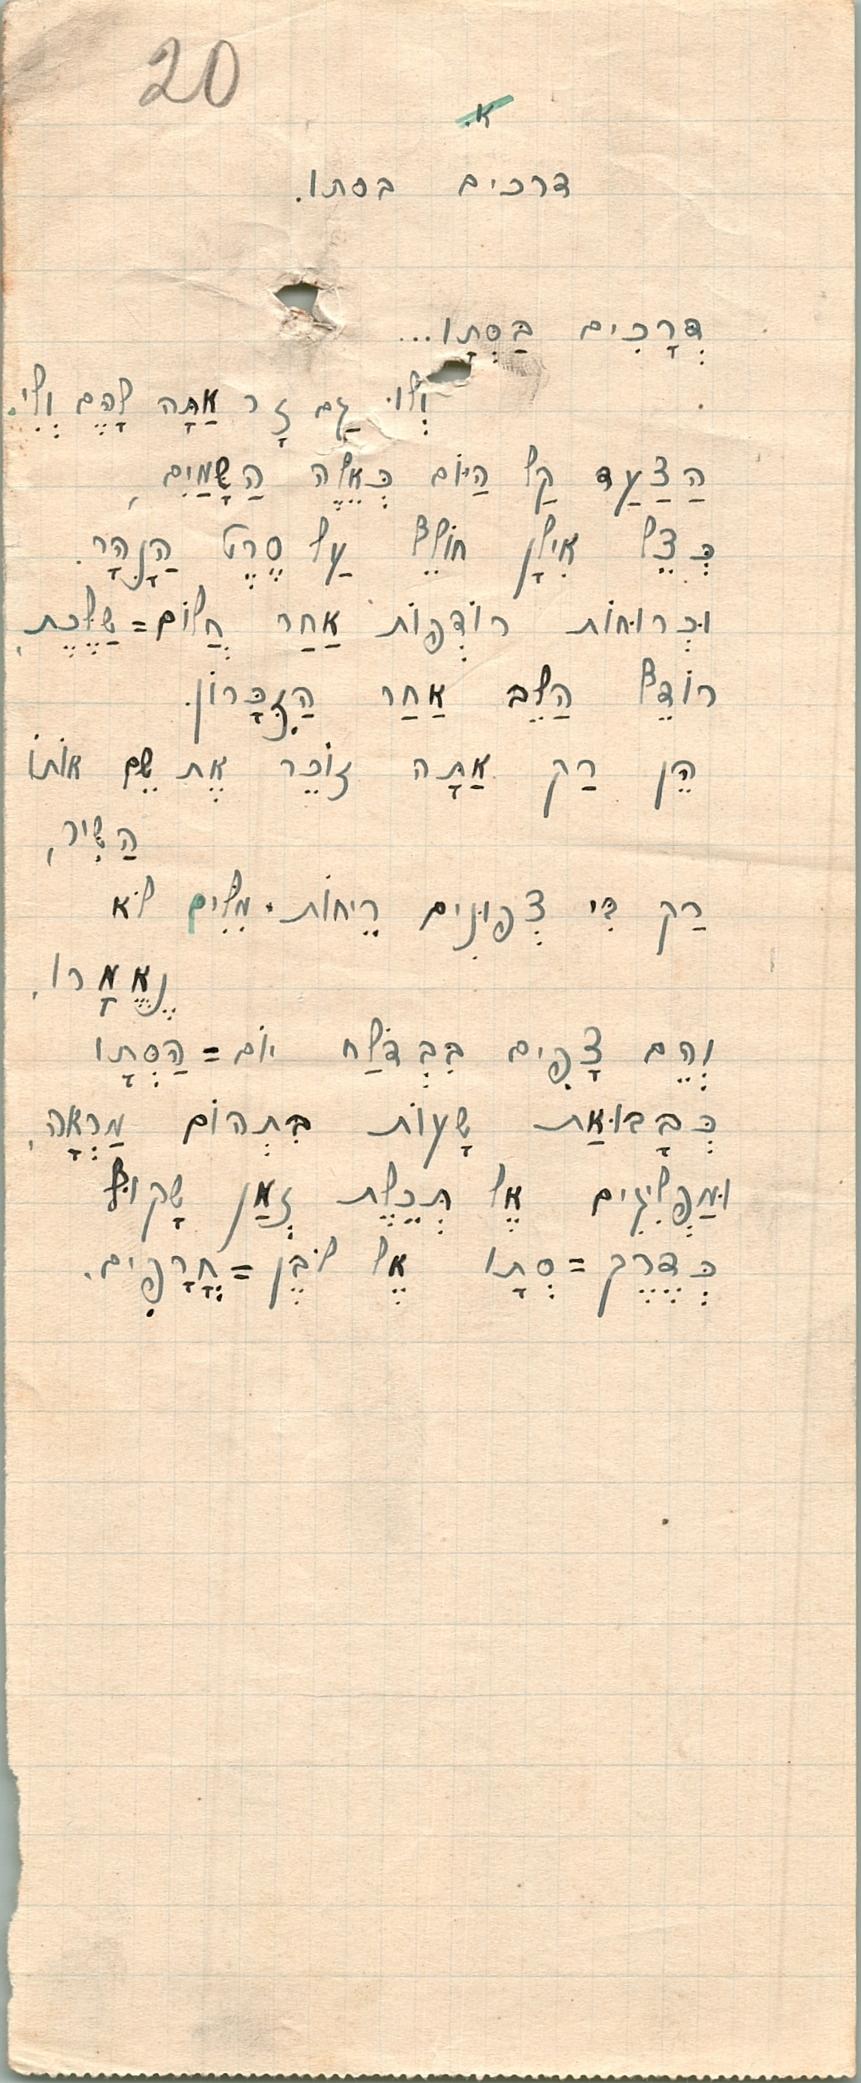 20
א.
דרכים בסתו.
דְּרָכִים בַּסְּתָו...
וְלוּ גַּם זָר אַתָּה לָהֶם וְלִי.
הַצַּעַד קַל הַיּוֹם כְּאֵלֶּה הַשָּׁמַיִם,
כְּצֵל אִילָן חוֹלֵף עַל סֶרֶט הַנָּהָר.
וּכְרוּחוֹת רוֹדְפוֹת אַחַר חֲלוֹם=שַׁלֶּכֶת,
רוֹדֵף הַלֵּב אַחַר הַזִּכָּרוֹן.
הֵן רַק אַתָּה זוֹכֵר אֶת שֵׁם אוֹתוֹ
הַשִּׁיר,
רַק דִּי צְפוּנִים רֵיחוֹת-מִלִּים לֹא
נֶאֱמָרוּ.
וְהֵם צָפִים בִּבְדֹלַח יוֹם=הַסְּתָו
כְּבָבוּאַת שָׁעוֹת בִּתְהוֹם מַרְאָה,
וּמַפְלִיגִים אֶל תְּכֵלֶת זְמַן שָׁקוּף
כְּדֶרֶךְ=סְתָו אֶל לֹבֶן=חֳרָפִים.